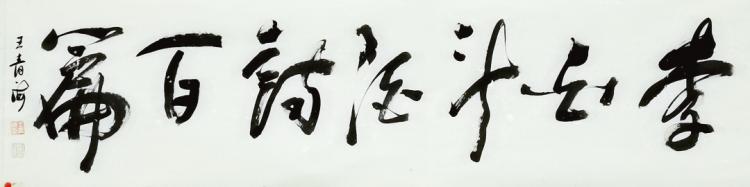 李白斗酒詩百篇
王青